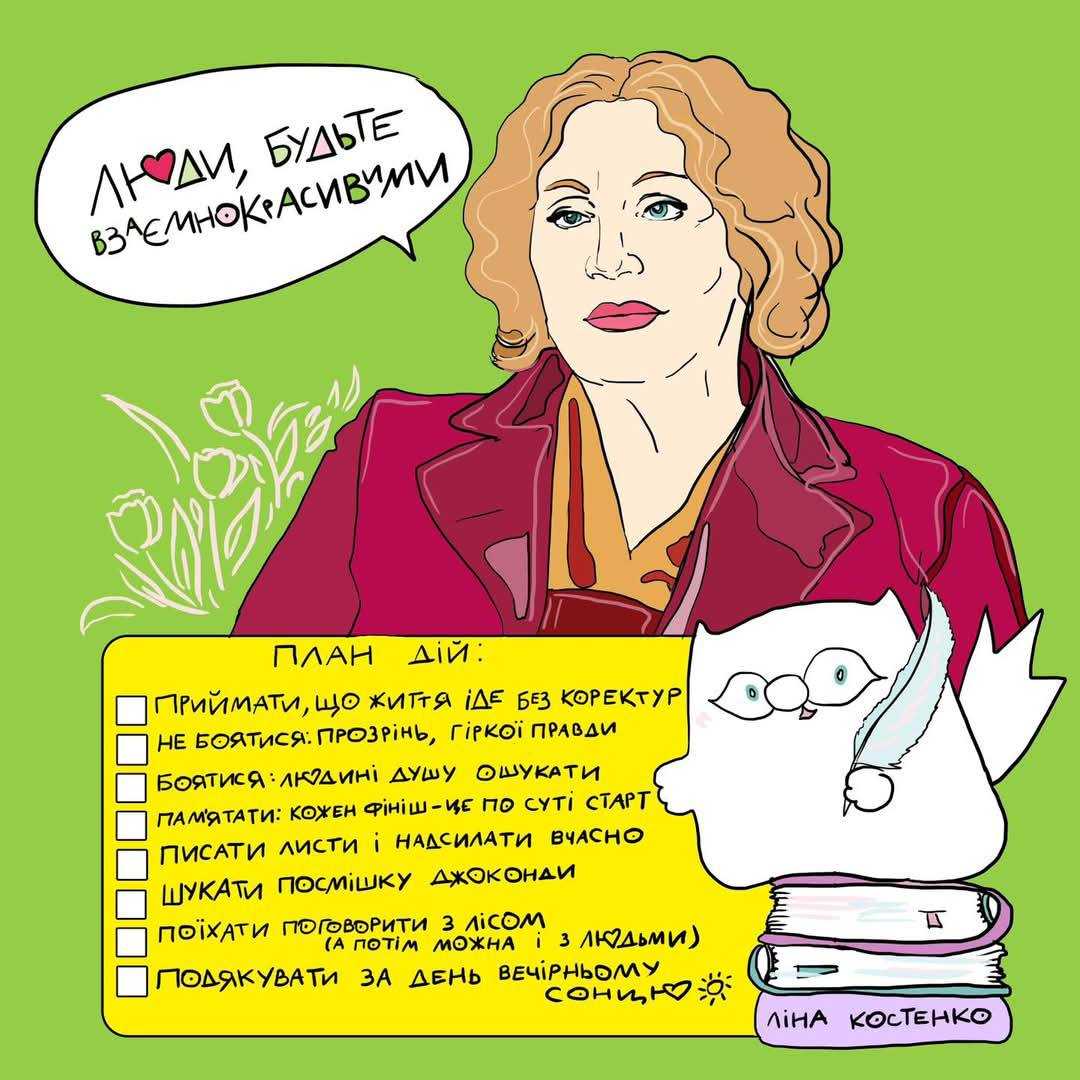 ЛЮДИ, БУДЬТЕ
ВЗАЄМНОКРАСИВИМИ
ПЛАН ДІЙ:
ПРИЙМАТИ, ЩО ЖИТТЯ ІДЕ БЕЗ КОРЕКТУР
НЕ БОЯТИСЯ: ПРОЗРІНЬ, ГІРКОЇ ПРАВДИ
БОЯТИСЯ: ЛЮДИНІ ДУШУ ОШУКАТИ
ПАМ'ЯТАТИ: КОЖЕН ФІНІШ - ЦЕ ПО СУТІ СТАРТ
ПИСАТИ ЛИСТИ І НАДСИЛАТИ ВЧАСНО
ШУКАТИ ПОСМІШКУ ДЖОКОНДИ
ПОЇХАТИ ПОГОВОРИТИ З ЛІСОМ
(А ПОТІМ МОЖНА І З ЛЮДЬМИ)
ПОДЯКУВАТИ ЗА ДЕНЬ ВЕЧІРНЬОМУ
СОНЦЮ
ЛІНА КОСТЕНКО